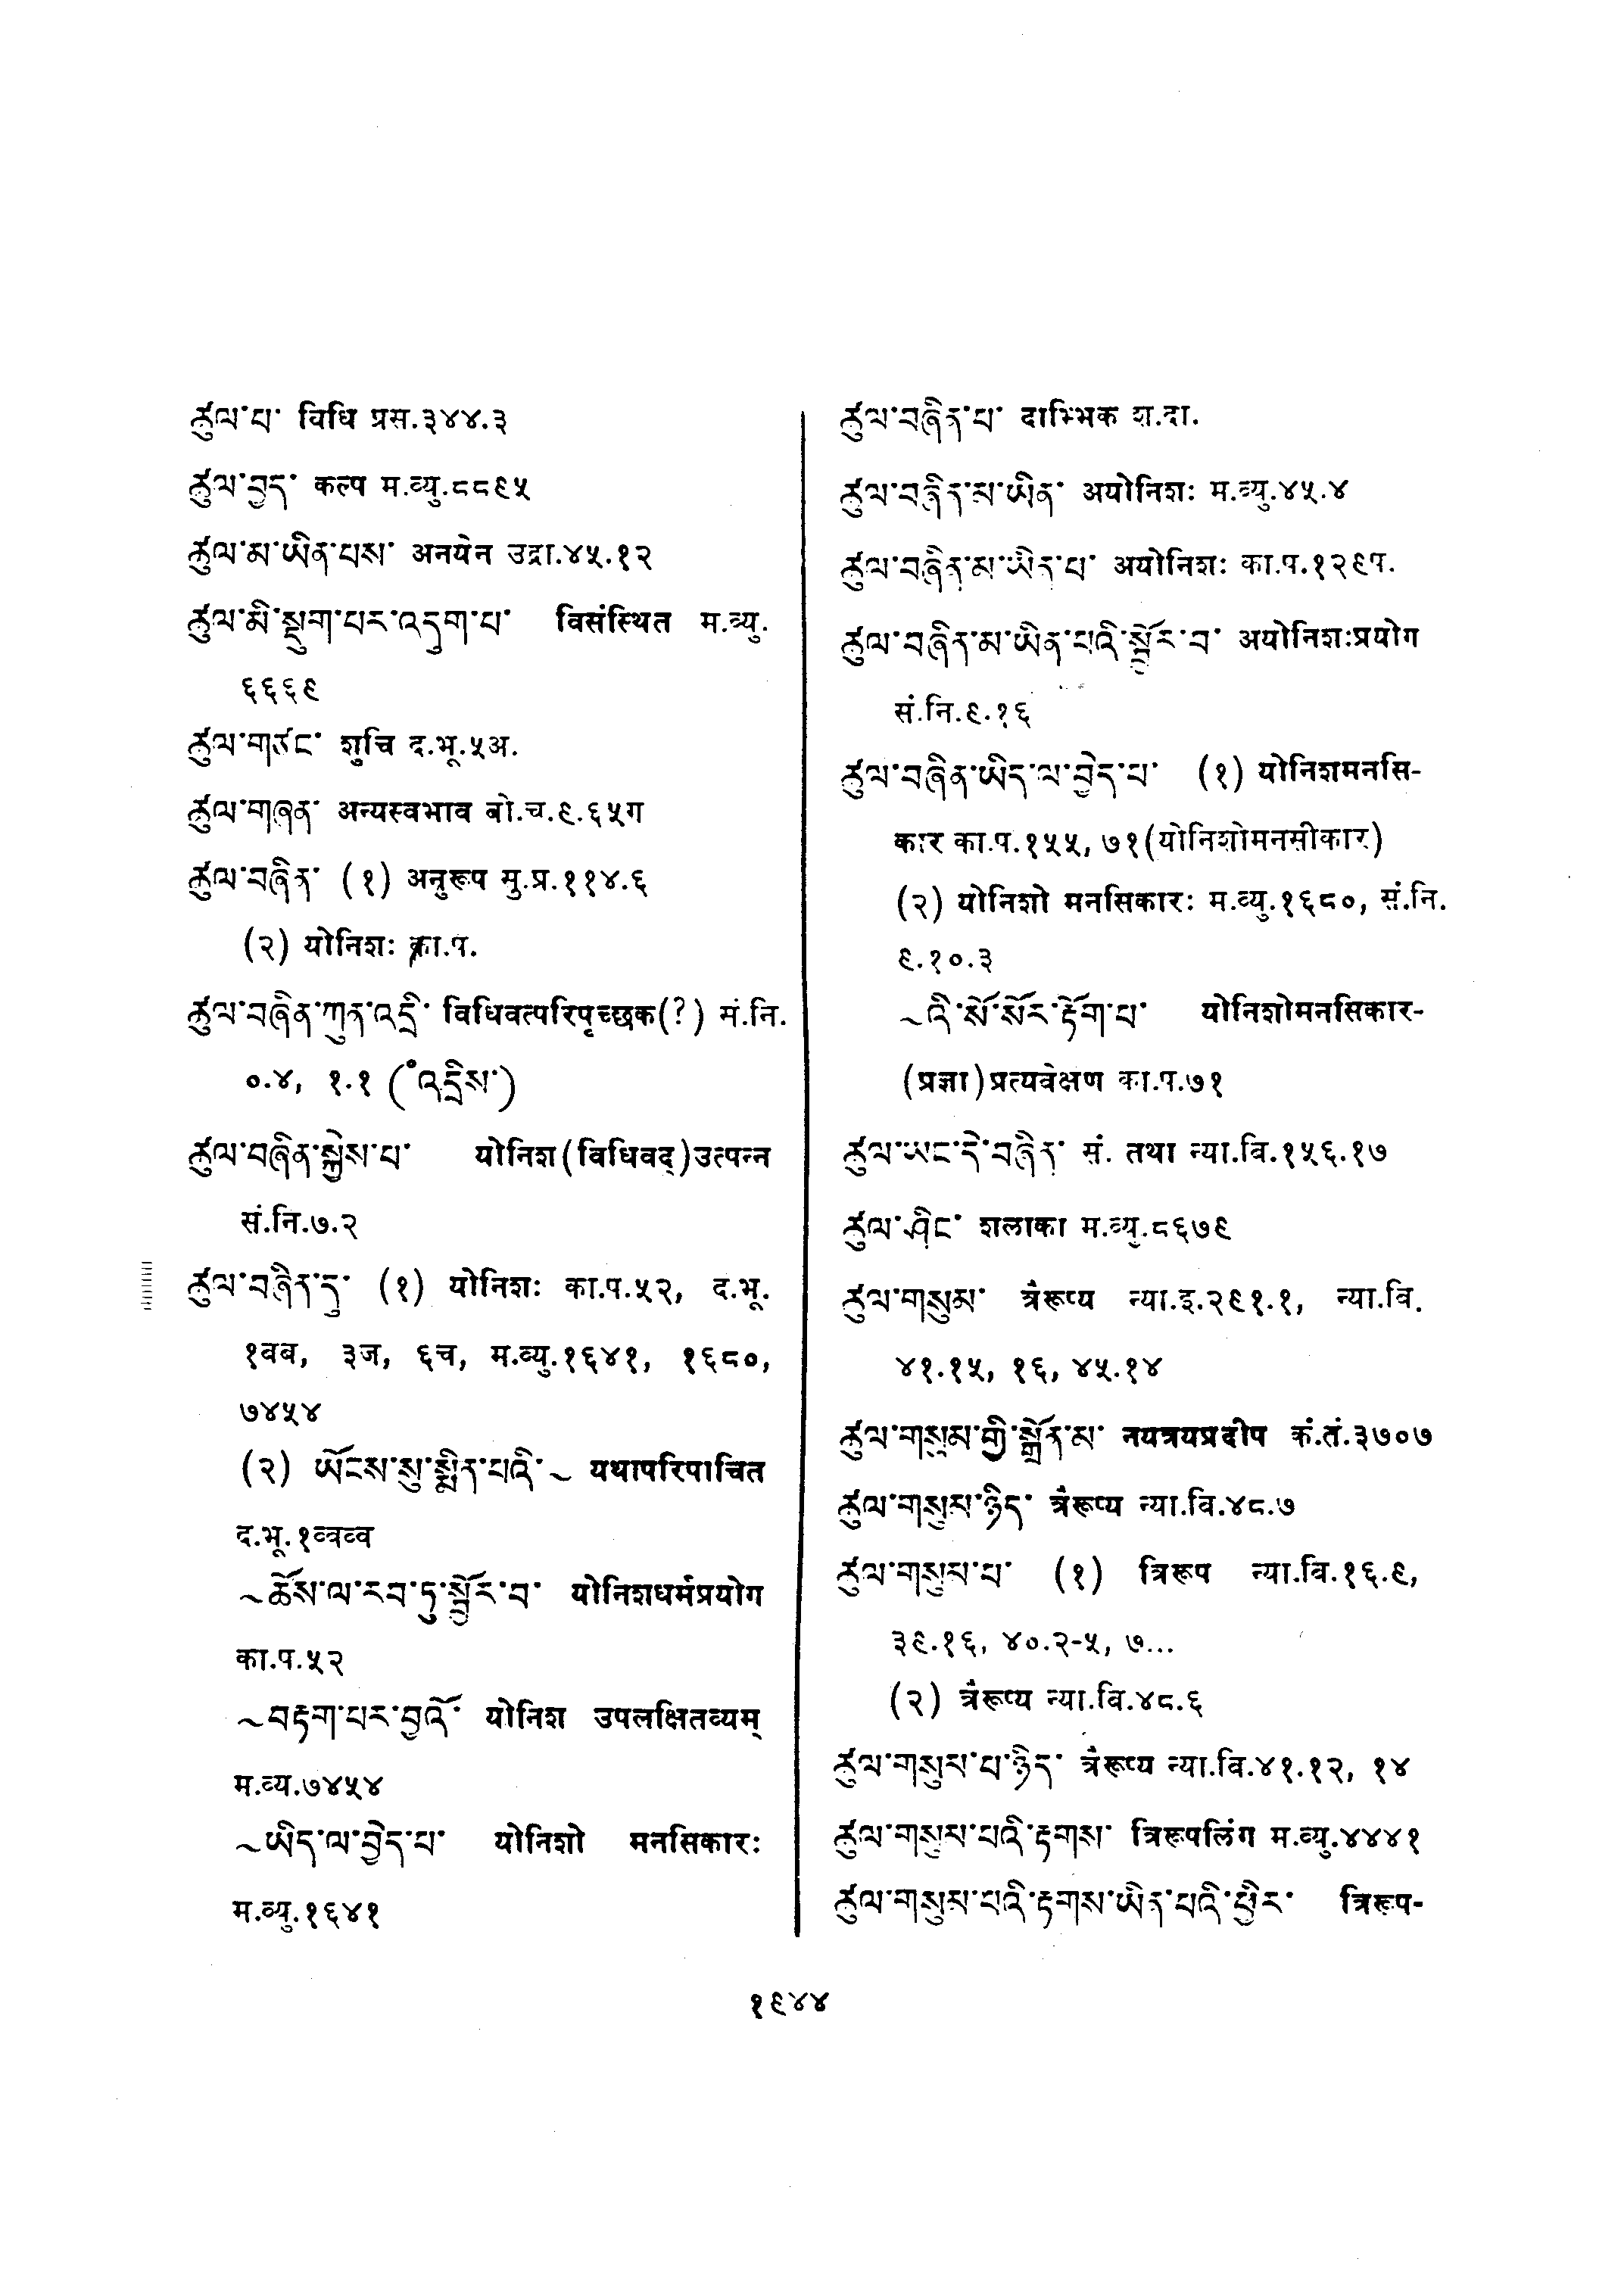 ཚུལ་པ་ विधि प्रस.३४४.३
ཚུལ་བྱད་ कल्प म.व्यु.८८९५
ཚུལ་མ་ཡིན་པས་ अनयेन उद्रा.४५.१२
ཚུལ་མི་སྡུག་པར་འདུག་པ་ विसंस्थित म.व्यु.
६६६९
ཚུལ་གཙང་ शुचि द.भू.५अ.
ཚུལ་གཞན་ अन्यस्वभाव बो.च.९.६५ग
ཚུལ་བཞིན་ (१) अनुरूप मु.प्र.११४.६
(२) योनिशः का.प.
ཚུལ་བཞིན་ཀུན་འདྲི་ विधिवत्परिपृच्छक(?) सं.नि.
०.४, १.१ (°འདྲིས་)
ཚུལ་བཞིན་སྐྱེས་པ་ योनिश(विधिवद्)उत्पन्न
सं.नि.७.२
ཚུལ་བཞིན་དུ་ (१) योनिशः का.प.५२, द.भू.
१बब, ३ज, ६च, म.व्यु.१६४१, १६८०,
७४५४
(२) ཡོངས་སུ་སྨིན་པའི་~ यथापरिपाचित
द.भू.१व्वव्व
~ཆོས་ལ་རབ་ཏུ་སྦྱོར་བ་ योनिशधर्मप्रयोग
का.प.५२
~བརྟག་པར་བྱའོ་ योनिश उपलक्षितव्यम्
म.व्य.७४५४
~ཡིད་ལ་བྱེད་པ་ योनिशो मनसिकारः
म.व्यु.१६४१
ཚུལ་བཞིན་པ་ दाम्भिक श.दा.
ཚུལ་བཞིན་མ་ཡིན་ अयोनिशः म.व्यु.४५.४
ཚུལ་བཞིན་མ་ཡིན་པ་ अयोनिशः का.प.१२९प.
ཚུལ་བཞིན་མ་ཡིན་པའི་སྦྱོར་བ་ अयोनिशःप्रयोग
सं.नि.९.१६
ཚུལ་བཞིན་ཡིད་ལ་བྱེད་པ་ (१) योनिशमनसि-
कार का.प.१५५, ७१(योनिशोमनसीकार)
(२) योनिशो मनसिकारः म.व्यु.१६८०, सं.नि.
९.१०.३
~འི་སོ་སོར་རྟོག་པ་ योनिशोमनसिकार-
(प्रज्ञा)प्रत्यवेक्षण का.प.७१
ཚུལ་ཡང་དེ་བཞིན་ सं. तथा न्या.वि.१५६.१७
ཚུལ་ཤིང་ शलाका म.व्यु.८६७९
ཚུལ་གསུམ་ त्रैरूप्य न्या.इ.२९१.१, न्या.वि.
४१.१५, १६, ४५.१४
ཚུལ་གསུམ་གྱི་སྒྲོན་མ་ नयत्रयप्रदीप कं.तं.३७०७
ཚུལ་གསུམ་ཉིད་ त्रैरूप्य न्या.वि.४८.७
ཚུལ་གསུམ་པ་ (१) त्रिरूप न्या.वि.१६.९,
३९.१६, ४०.२-५, ७...
(२) त्रैरूप्य न्या.वि.४८.६
ཚུལ་གསུམ་པ་ཉིད་ त्रैरूप्य न्या.वि.४१.१२, १४
ཚུལ་གསུམ་པའི་རྟགས་ त्रिरूपलिंग म.व्यु.४४४१
ཚུལ་གསུམ་པའི་རྟགས་ཡིན་པའི་ཕྱིར་ त्रिरूप-
१९४४